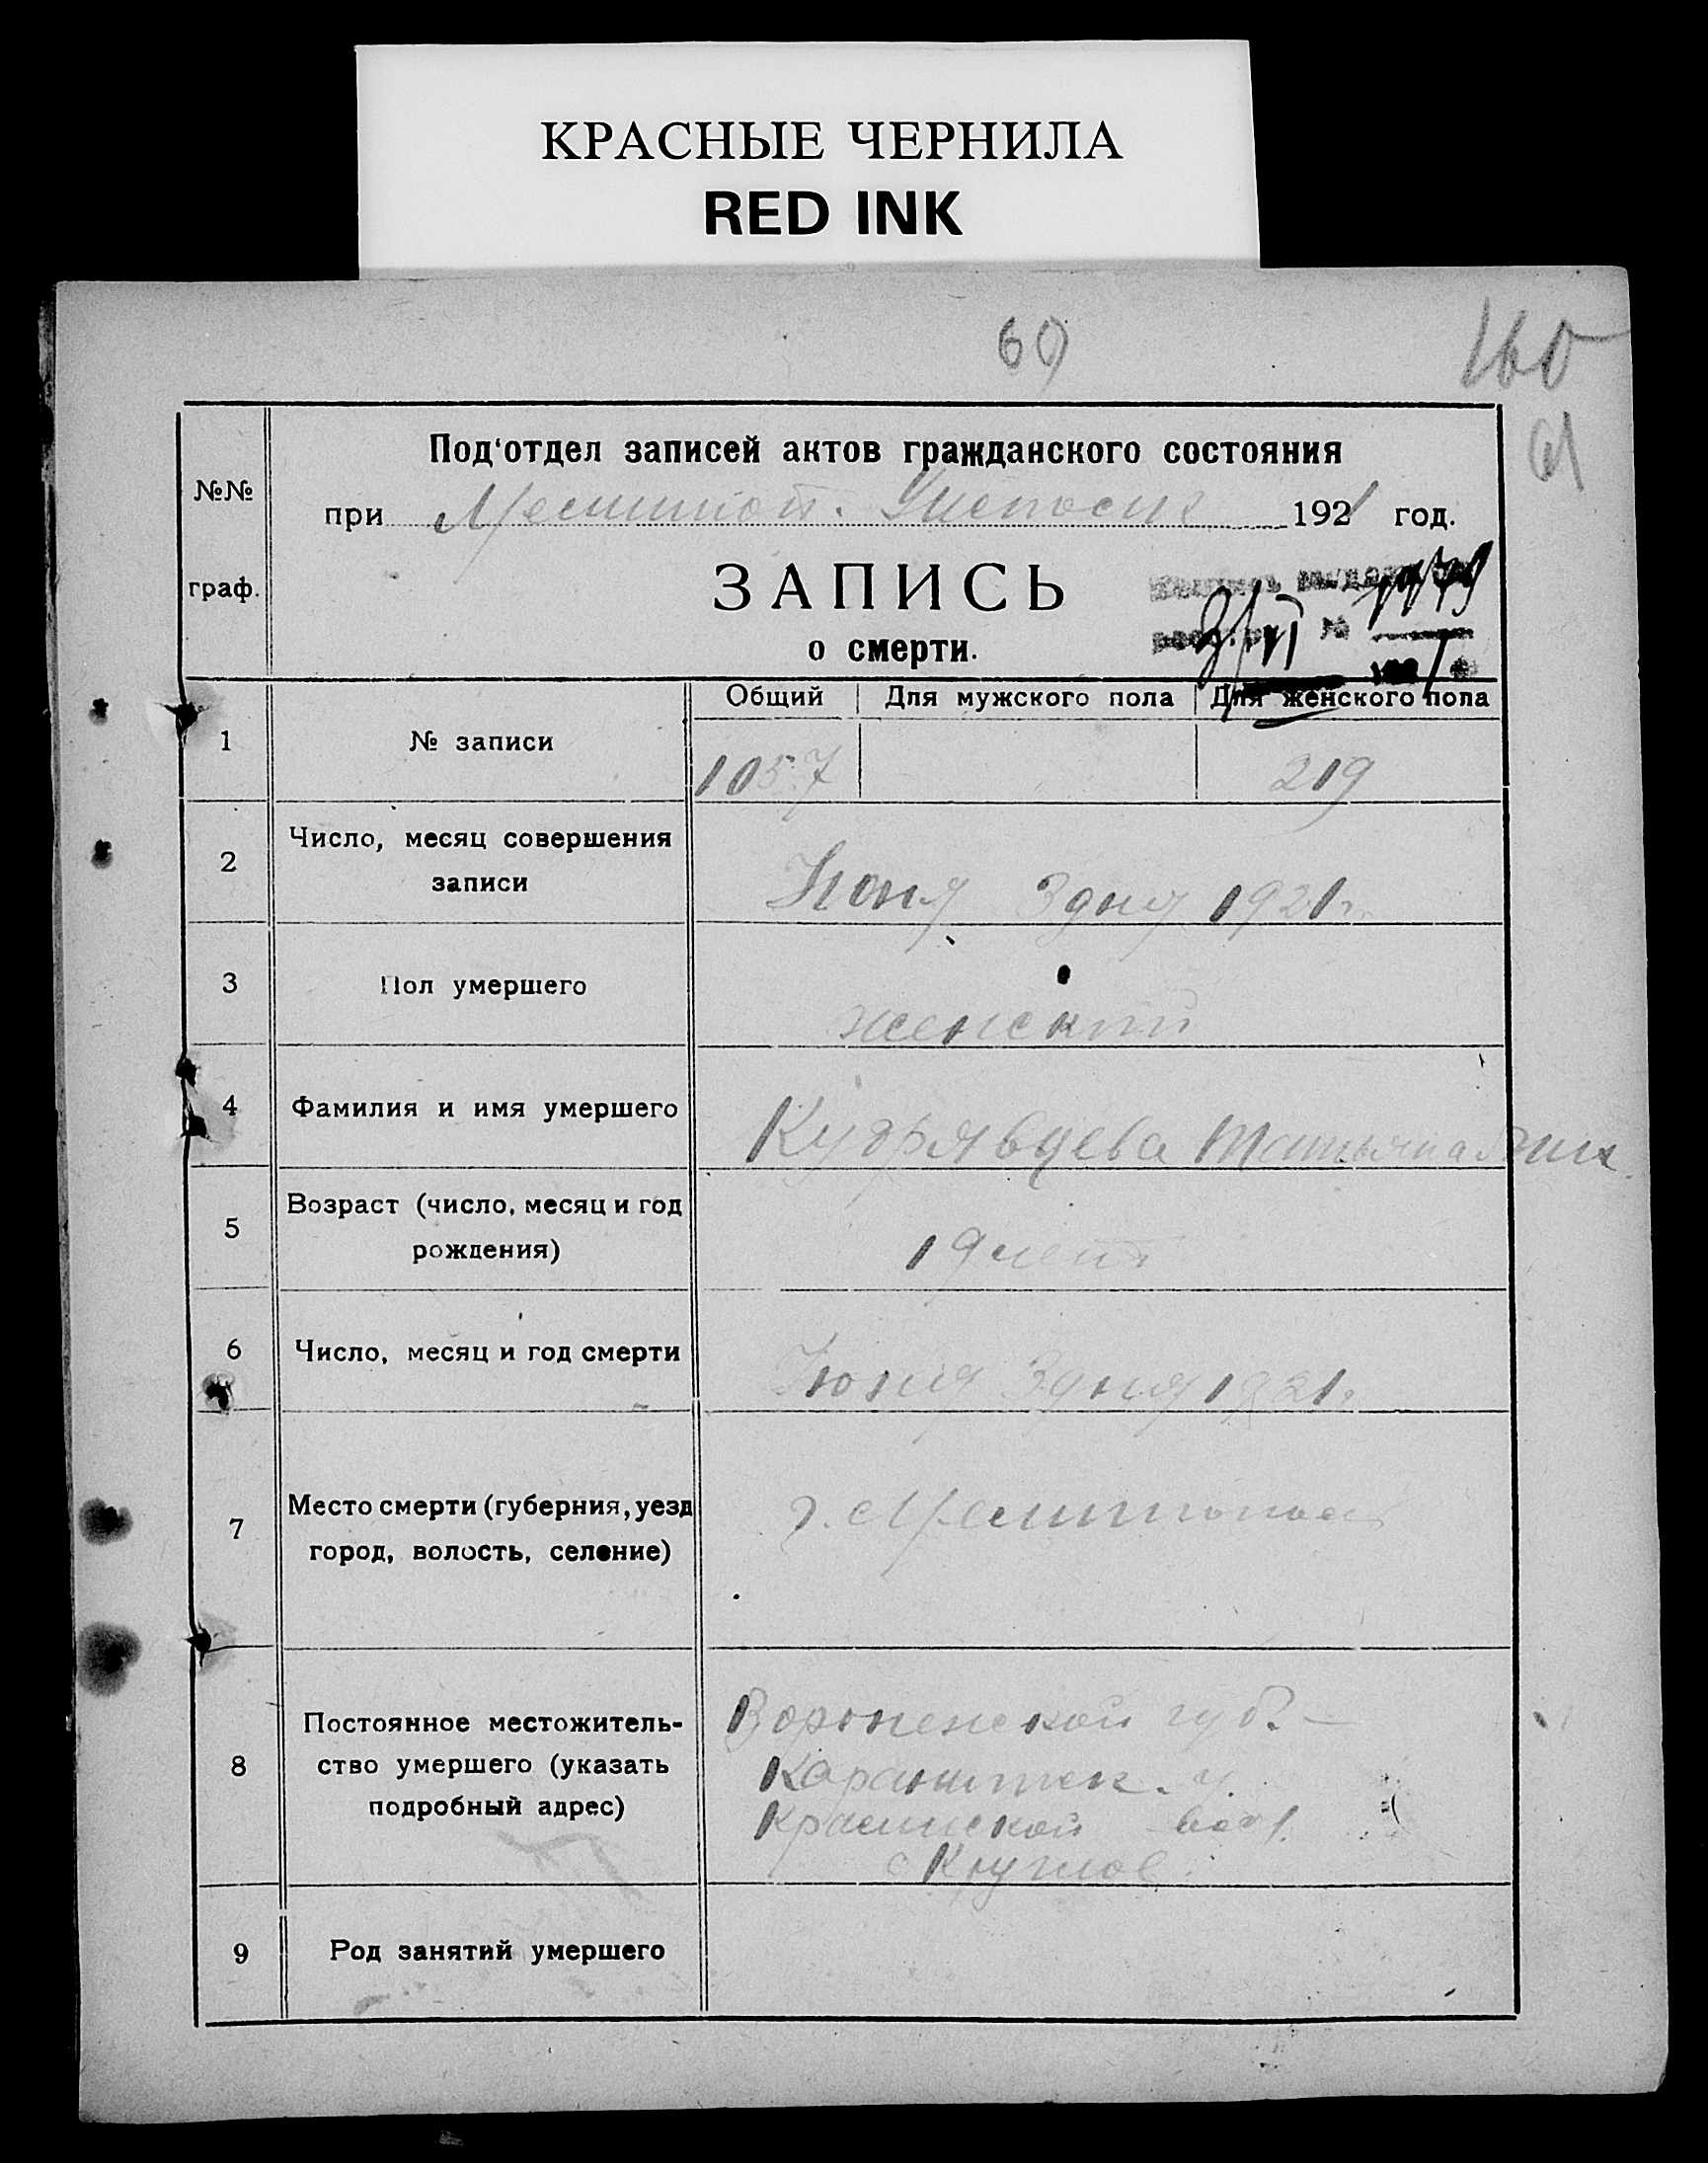 КРАСНЫЕ ЧЕРНИЛА
RED INK
60
160
61
№№ граф.
Под'отдел записей актов гражданского состояния
при Мелитоп. 1921 год.
ЗАПИСЬ
о смерти.
Общий Для мужского пола Для женского пола
1 № записи 1057 219
2 Число, месяц совершения
записи
Июня 3 дня 1921 г.
3 Пол умершего
женский
4 Фамилия и имя умершего
Кудрявцева Татьяна
5 Возраст (число, месяц и год
рождения)
19 лет
6 Число, месяц и год смерти
Июня 3 дня 1921 г.
7 Место смерти (губерния, уезд
город, волость, селение)
г. Мелитополь
8 Постоянное местожитель-
ство умершего (указать
подробный адрес)
губ.
вол.
9 Род занятий умершего